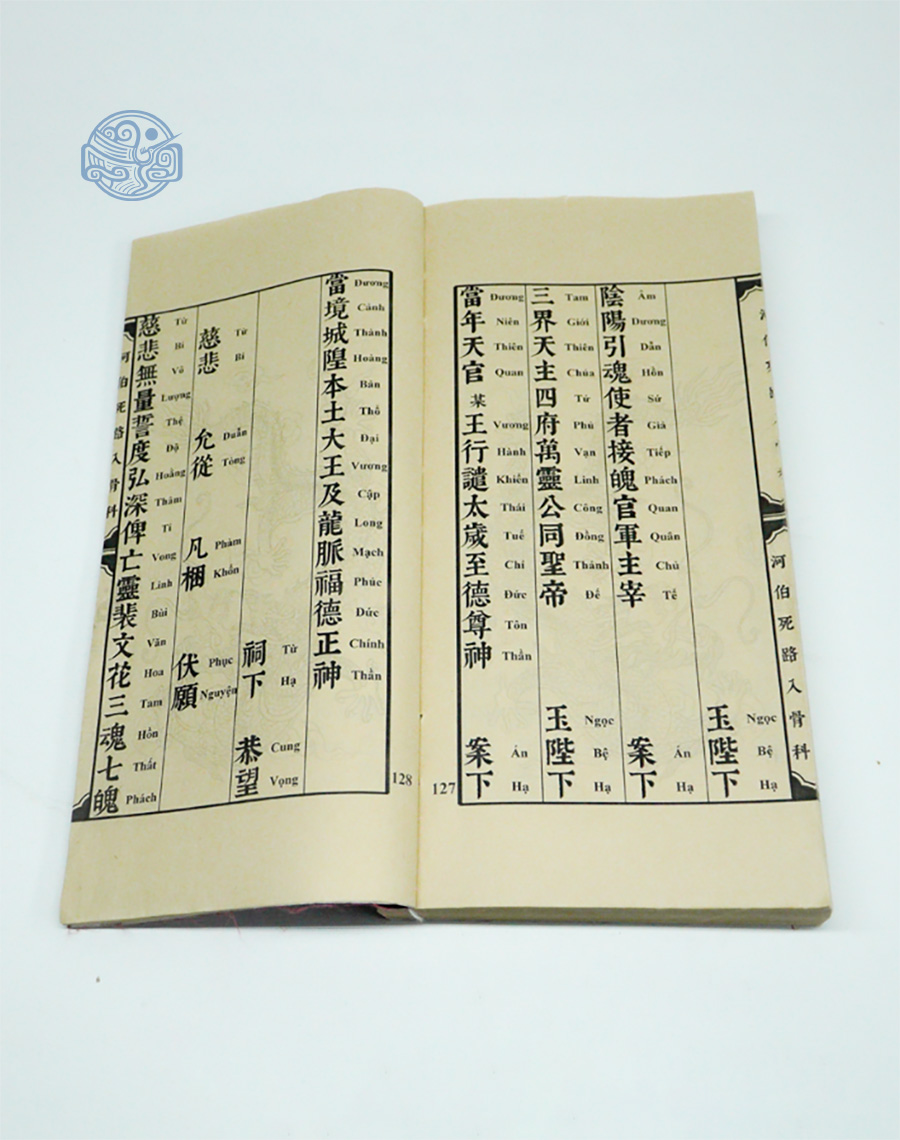 河伯死路入骨科
玉陛下
Ngọc Bệ Hạ
陰陽引魂使者接魄官軍主宰 案下
Âm Dương Dẫn Hồn Sứ Giả Tiếp Phách Quan Quân Chủ Tể Án Hạ
三界天主四府萬靈公同聖帝 玉陛下
Tam Giới Thiên Chúa Tứ Phủ Vạn Linh Công Đồng Thánh Đế Ngọc Bệ Hạ
當年天官某王行譴太歲至德尊神 案下
Dương Niên Thiên Quan Vương Hành Khiển Thái Tuế Chí Đức Tôn Thần Án Hạ
127
當境城隍本土大王及龍脈福德正神
Dương Cảnh Thành Hoàng Bản Thổ Đại Vương Cập Long Mạch Phúc Đức Chính Thần
祠下 恭望
Từ Hạ Cung Vọng
慈悲 允從 凡梱 伏願
Từ Bi Duẫn Tòng Phàm Khổn Phục Nguyện
慈悲無量誓度弘深俾亡靈裴文花三魂七魄
Từ Bi Vô Lượng Thệ Độ Hoằng Thâm Tỉ Vong Linh Bùi Văn Hoa Tam Hồn Thất Phách
河伯死路入骨科
128